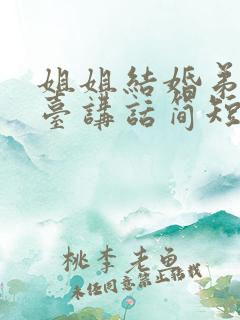 姐姐結婚弟
臺講話簡短
桃李老魚
未经同意禁止转载